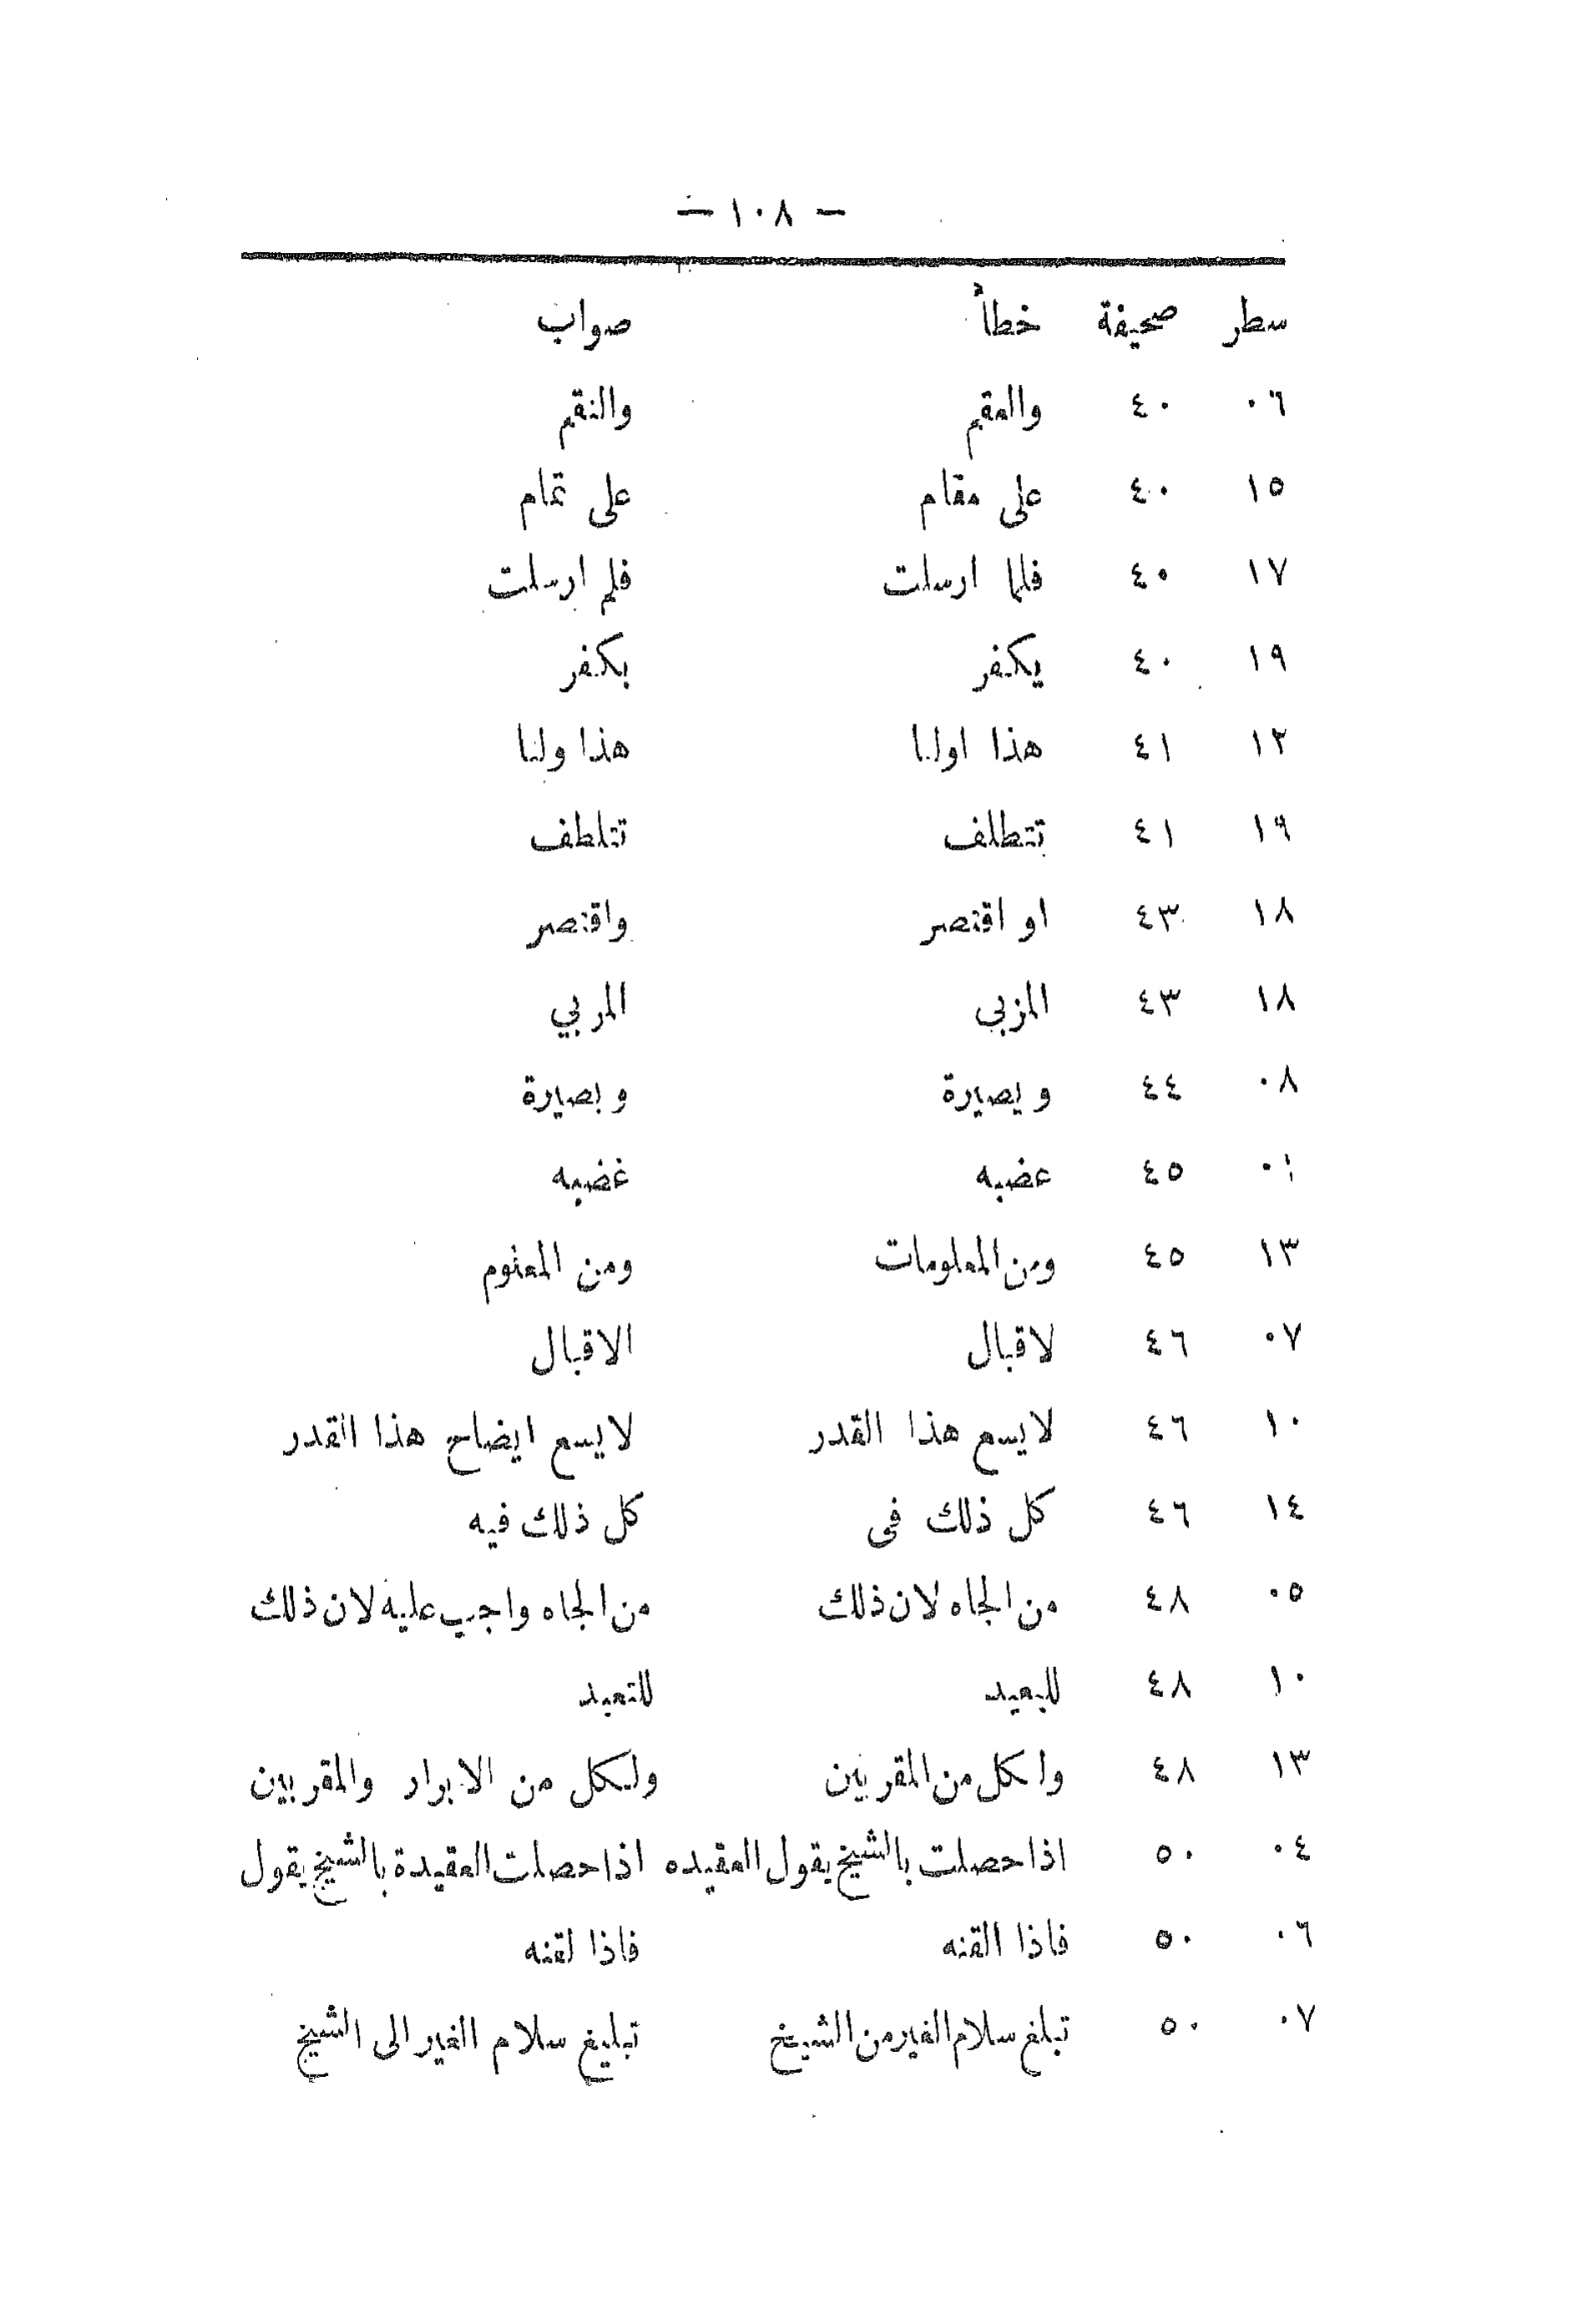 — ١٠٨ —
سطر صحيفة خطأ صواب
٠٦ ٤٠ والعقم والنقم
١٥ ٤٠ على مقام على تمام
١٧ ٤٠ فلما ارسلت فلم ارسلت
١٩ ٤٠ يكفر بكفر
١٢ ٤١ هذا اولنا هذا ولنا
١٩ ٤١ تتطلف تتلطف
١٨ ٤٣ او اقتصر واقتصر
١٨ ٤٣ المزبى المربي
٠٨ ٤٤ و يصيرة و بصيرة
٠١ ٤٥ عضبه غضبه
١٣ ٤٥ ومن المعلومات ومن المعلوم
٠٧ ٤٦ لاقبال الاقبال
١٠ ٤٦ لايسع هذا القدر لايسع ايضاح هذا القدر
١٤ ٤٦ كل ذلك فى كل ذلك فيه
٠٥ ٤٨ من الجاه لان ذلك من الجاه واجب عليه لان ذلك
١٠ ٤٨ للبعيد للتعبد
١٣ ٤٨ ولكل من المقربين ولكل من الابرار والمقربين
٠٤ ٥٠ اذا حصلت بالشيخ يقول العقيده اذا حصلت العقيدة بالشيخ يقول
٠٦ ٥٠ فاذا القنه فاذا لقنه
٠٧ ٥٠ تبلغ سلام الغير من الشيخ تبليغ سلام الغير الى الشيخ